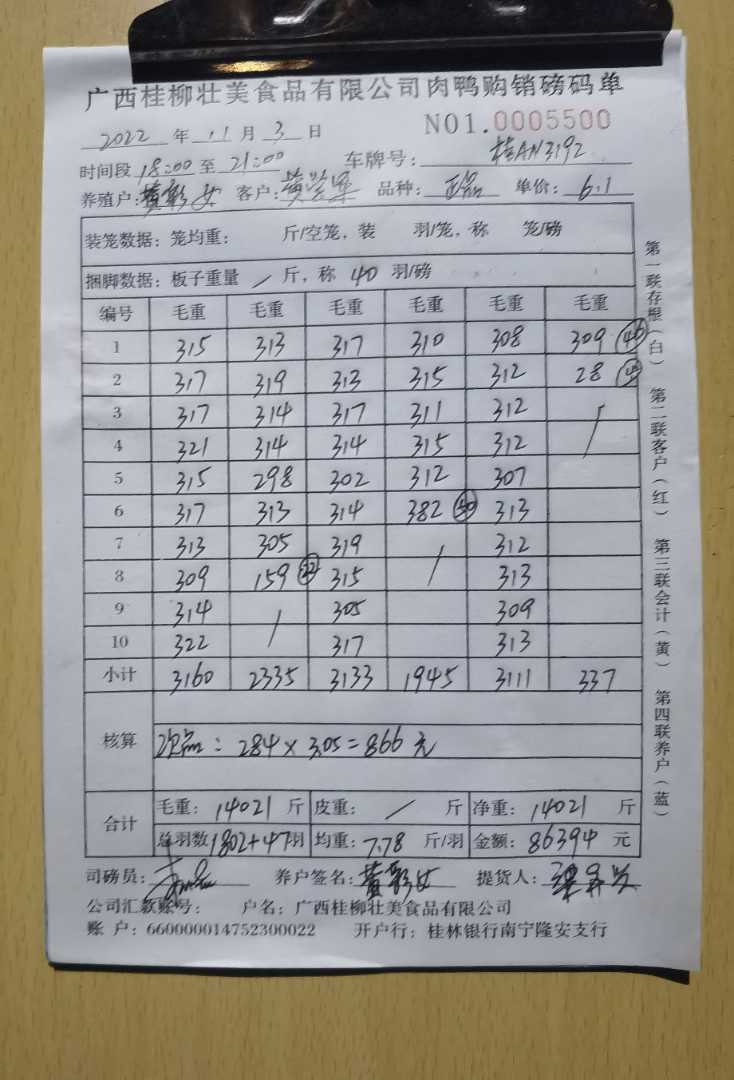 广西桂柳壮美食品有限公司肉鸭购销磅码单
2022 年 11 月 3 日 NO1.0005500
时间段 18:00 至 21:00 车牌号: 桂AN3192
养殖户: 黄彩女 客户: 黄 品种: 正品 单价: 6.1
装笼数据: 笼均重: 斤/空笼, 装 羽/笼, 称 笼/磅
捆脚数据: 板子重量 / 斤, 称 40 羽/磅
编号 毛重 毛重 毛重 毛重 毛重 毛重
1 315 313 317 310 308 309
2 317 319 313 315 312 28
3 317 314 317 311 312 /
4 321 314 314 315 312
5 315 298 302 312 307
6 317 313 314 382 50 313
7 313 305 319 / 312
8 309 159 22 315 313
9 314 / 305 309
10 322 317 313
小计 3160 2335 3133 1945 3111 337
核算 次品: 284×3.05=866 元
合计 毛重: 14021 斤 皮重: / 斤 净重: 14021 斤
总羽数 1802+47羽 均重: 7.78 斤/羽 金额: 86394 元
司磅员: 养户签名: 黄彩女 提货人:
公司汇款账号: 户名: 广西桂柳壮美食品有限公司
账 户: 660000014752300022 开户行: 桂林银行南宁隆安支行
第一联存根(白) 第二联客户(红) 第三联会计(黄) 第四联养户(蓝)